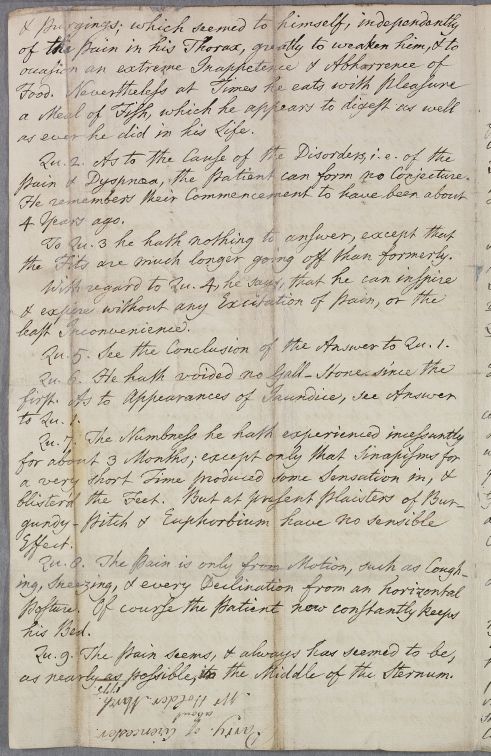 & Purgings; which seemed to himself, independently
of the Pain in his Thorax, greatly to weaken him, & to
occasion an extreme Inappetence & Abhorrence of
Food. Nevertheless at Times he eats with Pleasure
a Meal of Fish, which he appears to digest as well
as ever he did in his Life.
Qu. 2. As to the Cause of the Disorders, i.e. of the
Pain & Dyspnœa, the Patient can form no Conjecture.
He remembers their Commencement to have been about
4 Years ago.
To Qu. 3 he hath nothing to answer, except that
the Fits are much longer going off than formerly.
With regard to Qu. 4, he says, that he can inspire
& expire without any Excitation of Pain, or the
least Inconvenience.
Qu. 5. See the Conclusion of the Answer to Qu. 1.
Qu. 6. He hath voided no Gall-Stone since the
first. As to Appearances of Jaundice, see Answer
to Qu. 1.
Qu. 7. The Numbness he hath experienced incessantly
for about 3 Months; except only that Sinapisms for
a very short Time produced some Sensation in, &
blister'd the Feet. But at present Plaisters of Bur-
gundy-Pitch & Euphorbium have no sensible
Effect.
Qu. 8. The Pain is only from Motion, such as Cough-
ing, Sneezing, & every Declination from an horizontal
Posture. Of course the Patient now constantly keeps
his Bed.
Qu. 9. The Pain seems, & always has seemed to be,
as nearly as possible, in the Middle of the Sternum.
of Cirencester.
about
Mr Holder